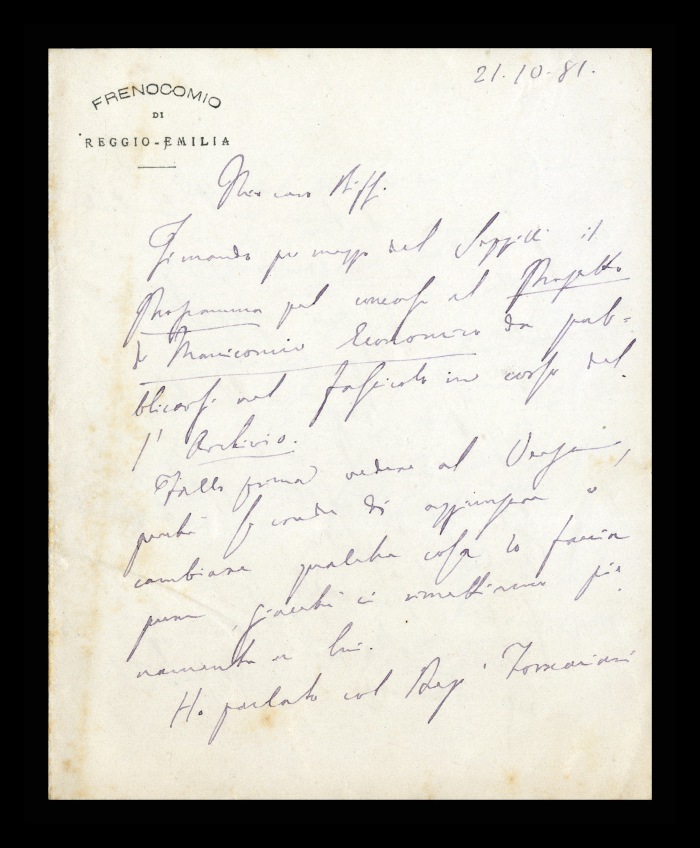 21.10.81.
FRENOCOMIO
DI
REGGIO-EMILIA
Mio caro Biffi
Ti mando per mezzo del Seppilli il
Programma pel concorso al Progetto
di Manicomio Economico da pub=
blicarsi nel fascicolo in corso del
l'Archivio.
Fallo prima vedere al Verga,
perché se crede di aggiungere o
cambiare qualche cosa lo faccia
pure, giacché ci rimettiamo pie
namente a lui.
Ho parlato col Tamburini